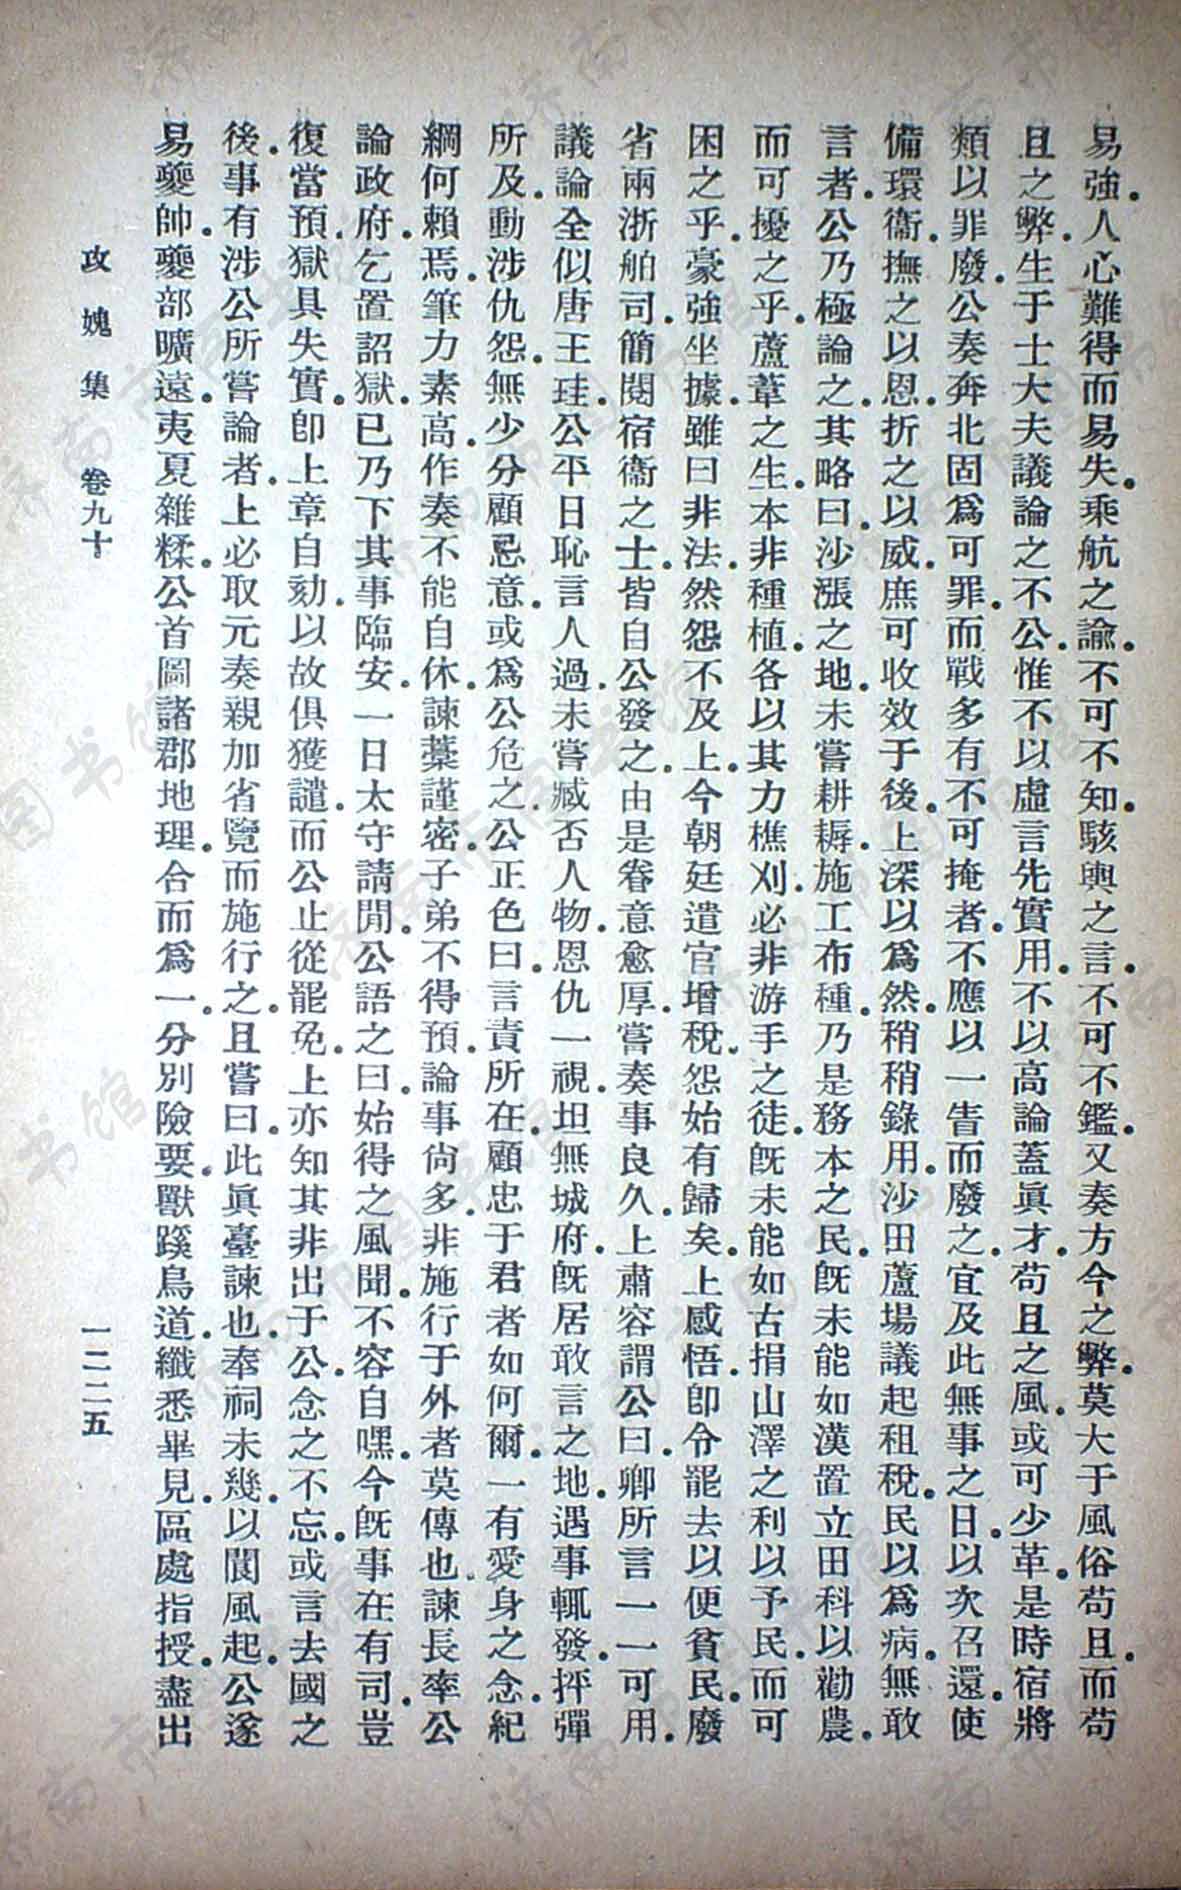 易強.人心難得而易失.乘航之諭.不可不知.駭輿之言.不可不鑑.又奏方今之弊.莫大于風俗苟且.而苟
且之弊.生于士大夫議論之不公.惟不以虛言先實用.不以高論蓋眞才.苟且之風.或可少革.是時宿將
類以罪廢.公奏奔北固爲可罪.而戰多有不可掩者.不應以一眚而廢之.宜及此無事之日.以次召還.使
備環衞.撫之以恩.折之以威.庶可收效于後.上深以爲然.稍稍錄用.沙田蘆場議起租稅.民以爲病.無敢
言者.公乃極論之.其略曰.沙漲之地.未嘗耕耨.施工布種.乃是務本之民.旣未能如漢置立田科以勸農.
而可擾之乎.蘆葦之生.本非種植.各以其力樵刈.必非游手之徒.旣未能如古捐山澤之利以予民.而可
困之乎.豪強坐據.雖曰非法.然怨不及上.今朝廷遣官增稅.怨始有歸矣.上感悟.卽令罷去以便貧民.廢
省兩浙舶司.簡閱宿衞之士.皆自公發之.由是眷意愈厚.嘗奏事良久.上肅容謂公曰.卿所言一一可用.
議論全似唐王珪.公平日恥言人過.未嘗臧否人物.恩仇一視.坦無城府.旣居敢言之地.遇事輒發.抨彈
所及.動涉仇怨.無少分顧忌意.或爲公危之.公正色曰.言責所在.顧忠于君者如何爾.一有愛身之念.紀
綱何賴焉.筆力素高.作奏不能自休.諫藁謹密.子弟不得預.論事尙多.非施行于外者莫傳也.諫長率公
論政府.乞置詔獄.已乃下其事臨安.一日太守請閒.公語之曰.始得之風聞.不容自嘿.今旣事在有司.豈
復當預.獄具失實.卽上章自劾.以故俱獲譴.而公止從罷免.上亦知其非出于公.念之不忘.或言去國之
後.事有涉公所嘗論者.上必取元奏親加省覽而施行之.且嘗曰.此眞臺諫也.奉祠未幾.以閩風起.公遂
易夔帥.夔部曠遠.夷夏雜糅.公首圖諸郡地理.合而爲一.分別險要.獸蹊鳥道.纖悉畢見.區處指授.盡出
攻媿集 卷九十 一二二五